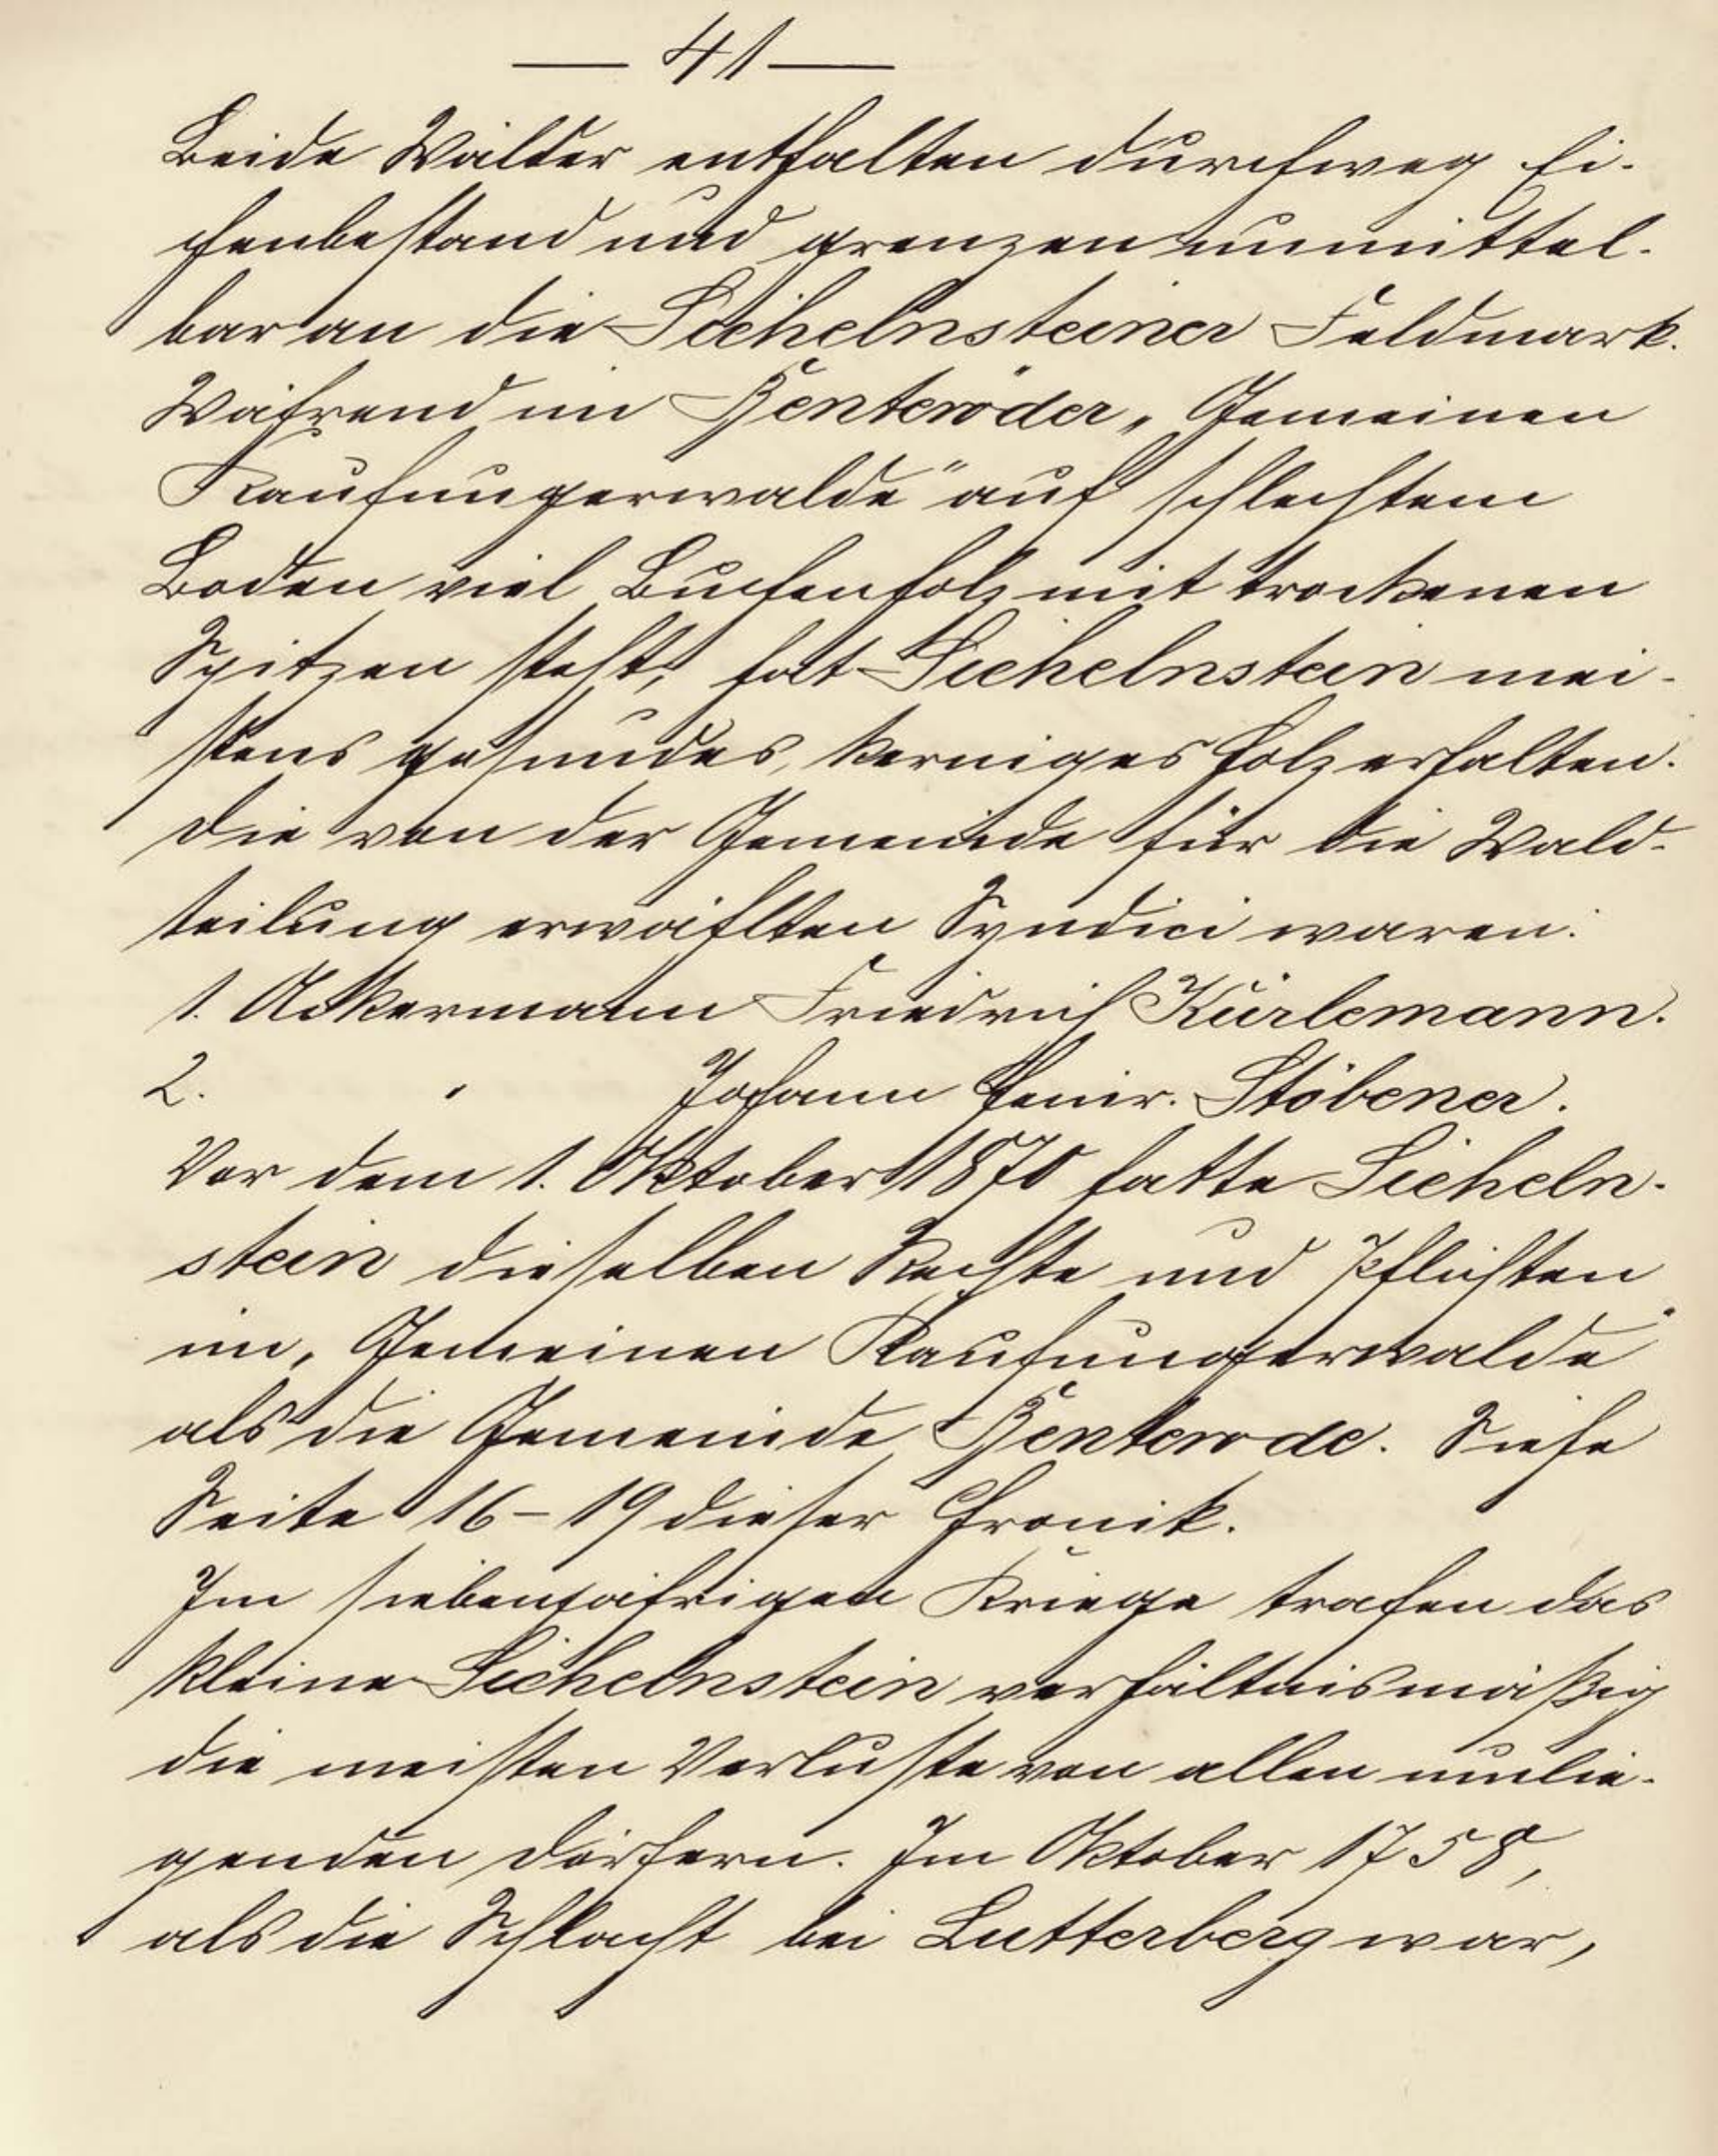 — 41 —
Beide Wälder enthalten durchweg Ei-
chenbestand und grenzen unmittel-
bar an die Sichelnsteiner Feldmark.
Während im Benteröder „Gemeinen
Kaufungerwalde" auf schlechtem
Boden viel Buchenholz mit trockenen
Spitzen steht, hat Sichelnstein mei-
stens gesundes, kerniges Holz erhalten.
Die von der Gemeinde für die Wald-
teilung erwählten Syndici waren:
1. Ackermann Friedrich Kürlemann.
2. " Johann Heinr. Stöbener.
Vor dem 1. Oktober 1870 hatte Sicheln-
stein dieselben Rechte und Pflichten
im „Gemeinen Kaufungerwalde"
als die Gemeinde Benterode. Siehe
Seite 16-19 dieser Chronik.
Im siebenjährigen Kriege trafen das
kleine Sichelnstein verhältnismäßig
die meisten Verluste von allen umlie-
genden Dörfern. Im Oktober 1758,
als die Schlacht bei Lutterberg war,